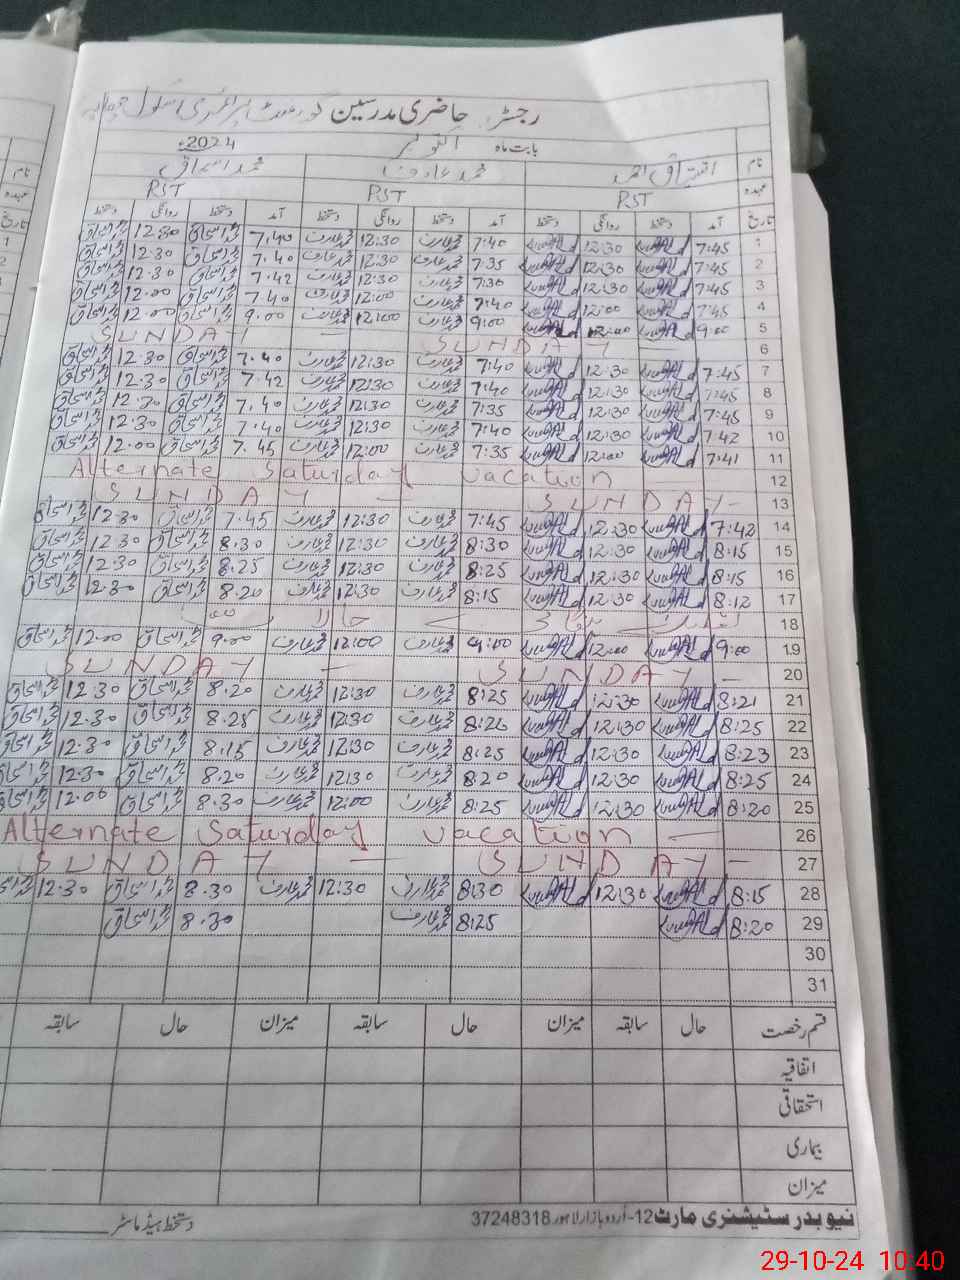 رجسٹر حاضری مدرسین گورنمنٹ پرائمری اسکول
بابت ماہ اکتوبر 2024ء
نام اشتیاق احمد محمد عارف محمد اسحاق
عہدہ PST PST PST
تاریخ آمد دستخط روانگی دستخط آمد دستخط روانگی دستخط آمد دستخط روانگی دستخط
1 7:45 12:30 7:40 محمد عارف 12:30 محمد عارف 7.40 محمد اسحاق 12.30 محمد اسحاق
2 7:45 12:30 7:35 محمد عارف 12:30 محمد عارف 7.40 محمد اسحاق 12.30 محمد اسحاق
3 7:45 12:30 7:30 محمد عارف 12:30 محمد عارف 7.42 محمد اسحاق 12.30 محمد اسحاق
4 7:45 12:00 7:40 محمد عارف 12:00 محمد عارف 7.40 محمد اسحاق 12.00 محمد اسحاق
5 9:00 12:00 9:00 محمد عارف 12:00 محمد عارف 9.00 محمد اسحاق 12.00 محمد اسحاق
6 SUNDAY SUNDAY
7 7:45 12:30 7:40 محمد عارف 12:30 محمد عارف 7.40 محمد اسحاق 12.30 محمد اسحاق
8 7:45 12:30 7:40 محمد عارف 12:30 محمد عارف 7.42 محمد اسحاق 12.30 محمد اسحاق
9 7:45 12:30 7:35 محمد عارف 12:30 محمد عارف 7.40 محمد اسحاق 12.30 محمد اسحاق
10 7:42 12:30 7:40 محمد عارف 12:30 محمد عارف 7.40 محمد اسحاق 12.30 محمد اسحاق
11 7:41 12:00 7:35 محمد عارف 12:00 محمد عارف 7.45 محمد اسحاق 12.00 محمد اسحاق
12 Alternate Saturday vacation
13 SUNDAY - SUNDAY -
14 7:42 12:30 7:45 محمد عارف 12:30 محمد عارف 7.45 محمد اسحاق 12.30 محمد اسحاق
15 8:15 12:30 8:30 محمد عارف 12:30 محمد عارف 8.30 محمد اسحاق 12.30 محمد اسحاق
16 8:15 12:30 8:25 محمد عارف 12:30 محمد عارف 8.25 محمد اسحاق 12.30 محمد اسحاق
17 8:12 12:30 8:15 محمد عارف 12:30 محمد عارف 8.20 محمد اسحاق 12.30 محمد اسحاق
18
19 9:00 12:00 9:00 محمد عارف 12:00 محمد عارف 9.00 محمد اسحاق 12.00 محمد اسحاق
20 SUNDAY - SUNDAY -
21 8:21 12:30 8:25 محمد عارف 12:30 محمد عارف 8.20 محمد اسحاق 12.30 محمد اسحاق
22 8:25 12:30 8:20 محمد عارف 12:30 محمد عارف 8.25 محمد اسحاق 12.30 محمد اسحاق
23 8:23 12:30 8:25 محمد عارف 12:30 محمد عارف 8.15 محمد اسحاق 12.30 محمد اسحاق
24 8:25 12:30 8:20 محمد عارف 12:30 محمد عارف 8.20 محمد اسحاق 12.30 محمد اسحاق
25 8:20 12:30 8:25 محمد عارف 12:00 محمد عارف 8.30 محمد اسحاق 12.00 محمد اسحاق
26 Alternate Saturday vacation
27 SUNDAY - SUNDAY -
28 8:15 12:30 8:30 محمد عارف 12:30 محمد عارف 8.30 محمد اسحاق 12.30 محمد اسحاق
29 8:20 8:25 محمد عارف 8.30 محمد اسحاق
30
31
قسم رخصت حال سابقہ میزان حال سابقہ میزان حال سابقہ
اتفاقیہ
استحقاقی
بیماری
میزان
نیو بدر سٹیشنری مارٹ 12-اردو بازار لاہور 37248318 دستخط ہیڈ ماسٹر
29-10-24 10:40